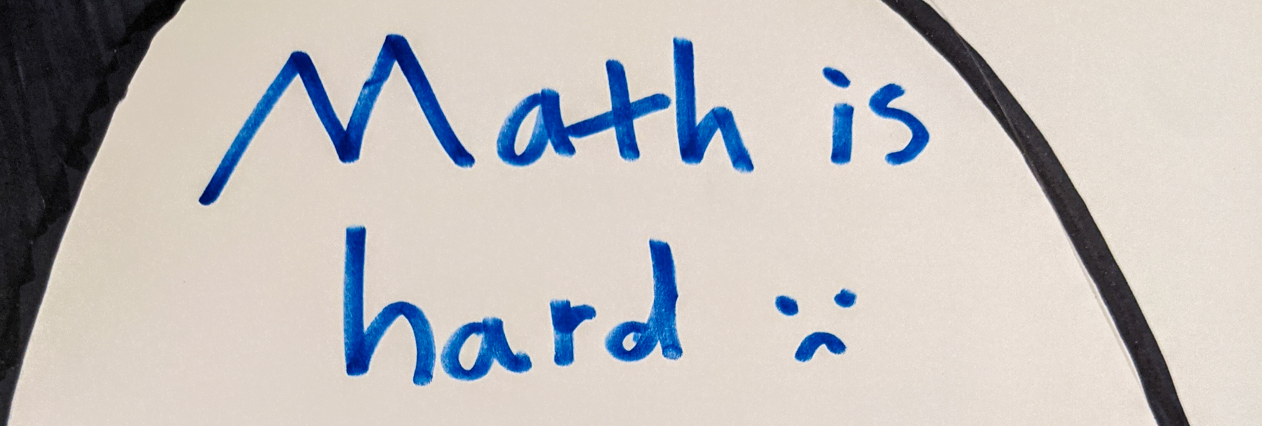 Math is
hard :(